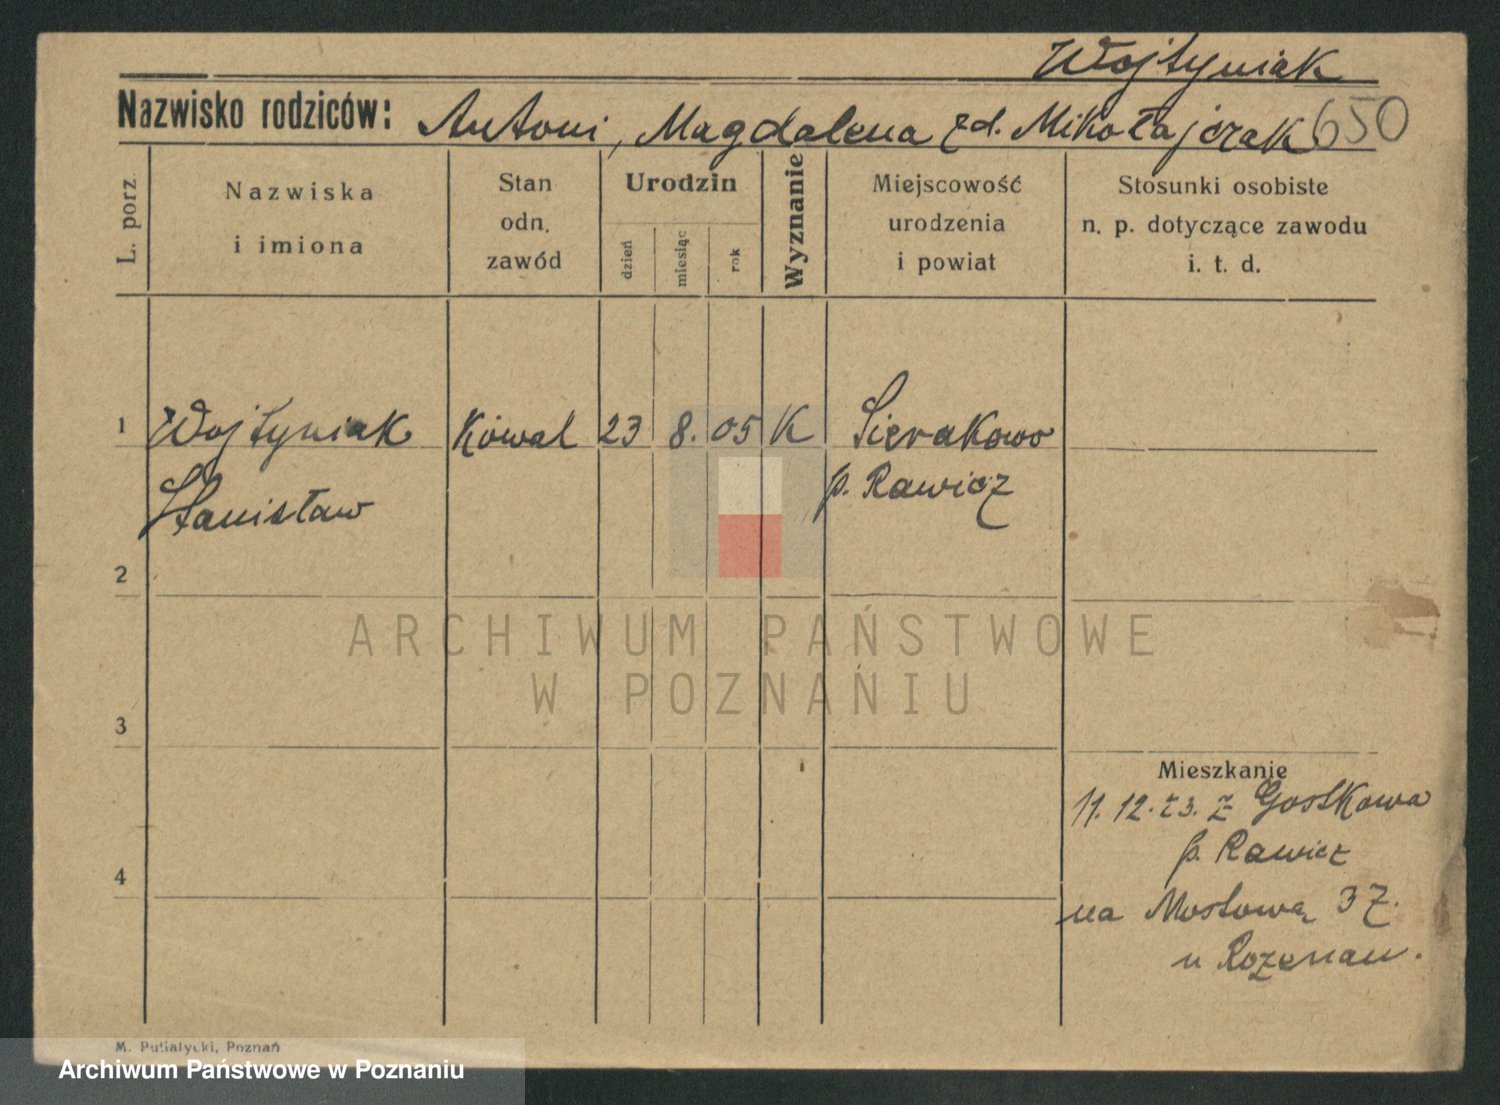 Wojtyniak
Nazwisko rodziców: Antoni, Magdalena zd. Mikołajczak 650
L. porz.
Nazwiska
i imiona
Stan
odn.
zawód
Urodzin
dzień
miesiąc
rok
Wyznanie
Miejscowość
urodzenia
i powiat
Stosunki osobiste
n. p. dotyczące zawodu
i. t. d.
1 Wojtyniak Kowal 23 8. 05 K Sierakowo
Stanisław p. Rawicz
2
ARCHIWUM PAŃSTWOWE
W POZNANIU
3
Mieszkanie
11. 12. 23. z Gostkowa
p. Rawicz
4
na Mostową
u Rozenau.
M. Putiatycki, Poznań
Archiwum Państwowe w Poznaniu